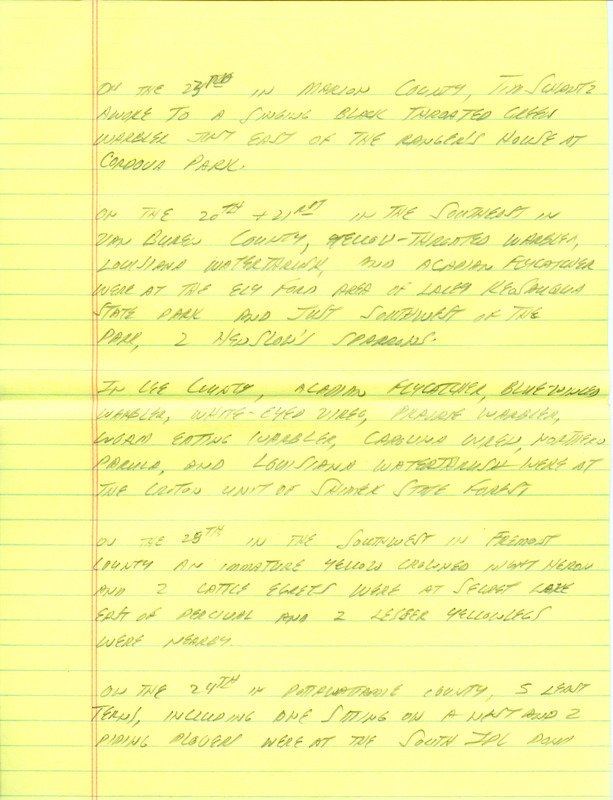 ON THE 23RD IN MARION COUNTY, TIM SCHANTZ
AWOKE TO A SINGING BLACK THROATED GREEN
WARBLER JUST EAST OF THE RANGER'S HOUSE AT
CORDOVA PARK.
ON THE 20TH + 21ST IN THE SOUTHEAST IN
VAN BUREN COUNTY, YELLOW-THROATED WARBLER,
LOUISIANA WATERTHRUSH, AND ACADIAN FLYCATCHER
WERE AT THE ELY FORD AREA OF LACEY KEOSAUQUA
STATE PARK AND JUST SOUTHWEST OF THE
PARK, 2 HENSLOW'S SPARROWS.
IN LEE COUNTY, ACADIAN FLYCATCHER, BLUE-WINGED
WARBLER, WHITE-EYED VIREO, PRAIRIE WARBLER,
WORM EATING WARBLER, CAROLINA WREN, NORTHERN
PARULA, AND LOUISIANA WATERTHRUSH WERE AT
THE CROTON UNIT OF SHIMEK STATE FOREST
ON THE 25TH IN THE SOUTHWEST IN FREMONT
COUNTY AN IMMATURE YELLOW CROWNED NIGHT HERON
AND 2 CATTLE EGRETS WERE AT SELECT LAKE
EAST OF PERCIVAL AND 2 LESSER YELLOWLEGS
WERE NEARBY.
ON THE 24TH IN POTTAWATTAMIE COUNTY, 5 LEAST
TERNS, INCLUDING ONE SITTING ON A NEST AND 2
PIPING PLOVERS WERE AT THE SOUTH IPL PONDS